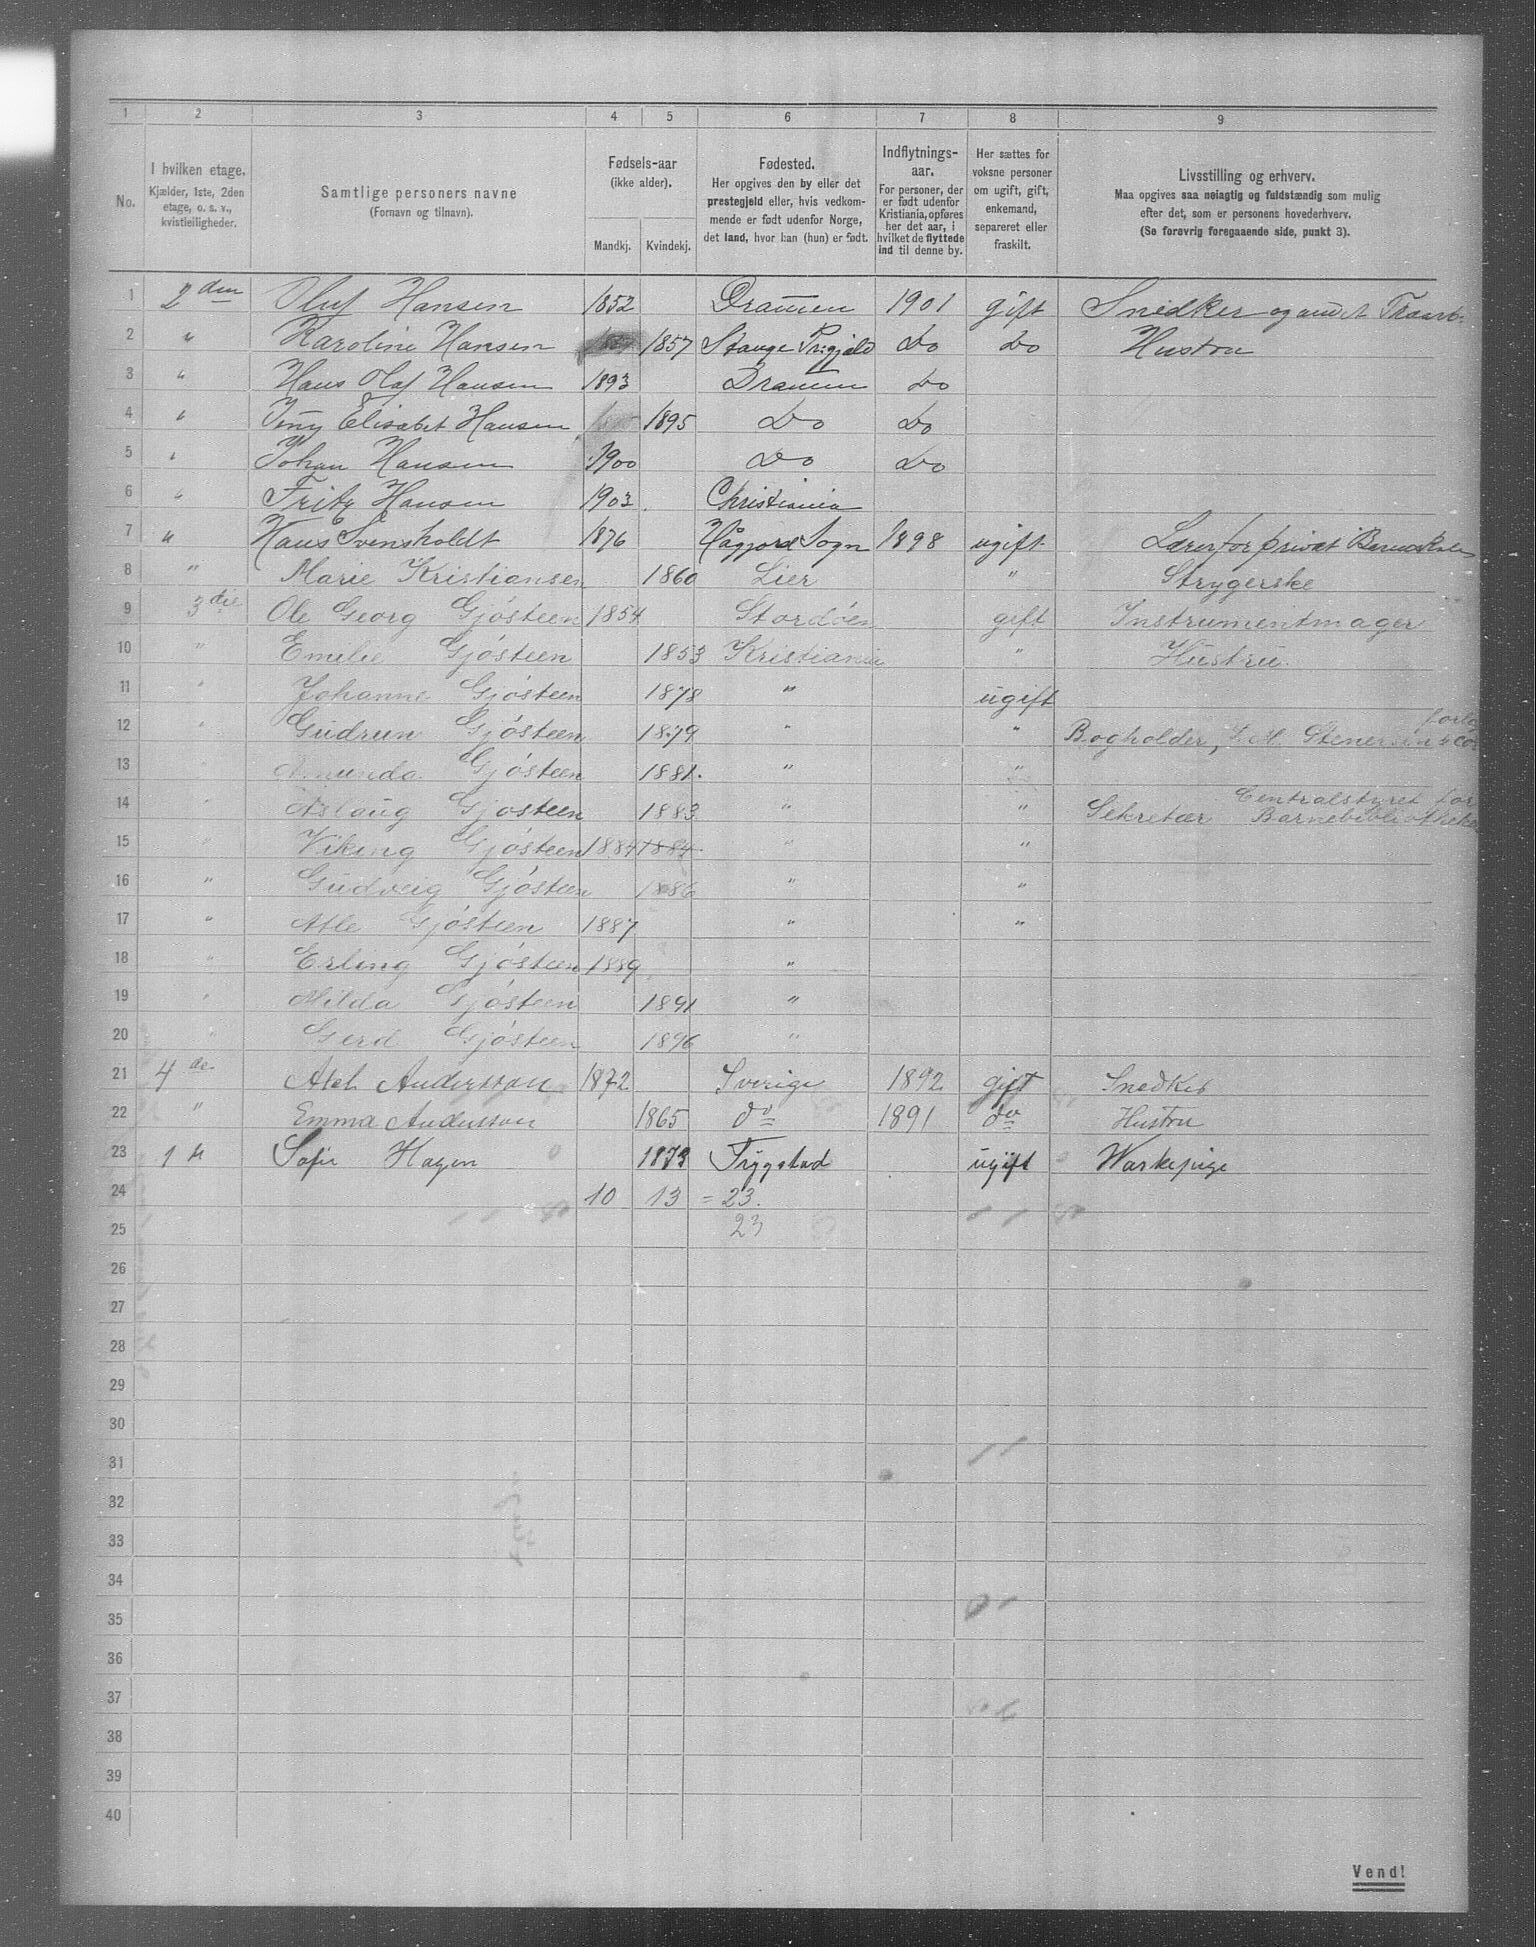 1 2 3 4 5 6 7 8 9
No.
I hvilken etage.
Kjælder, 1ste, 2den
etage, o. s. v.,
kvistleiligheder.
Samtlige personers navne
(Fornavn og tilnavn).
Fødsels-aar
(ikke alder).
Mandkj. Kvindekj.
Fødested.
Her opgives den by eller det
prestegjeld eller, hvis vedkom-
mende er født udenfor Norge,
det land, hvor han (hun) er født.
Indflytnings-
aar.
For personer, der
er født udenfor
Kristiania, opføres
her det aar, i
hvilket de flyttede
ind til denne by.
Her sættes for
voksne personer
om ugift, gift,
enkemand,
separeret eller
fraskilt.
Livsstilling og erhverv.
Maa opgives saa nøiagtig og fuldstændig som mulig
efter det, som er personens hovederhverv.
(Se forøvrig foregaaende side, punkt 3).
1 2 den Oluf Hansen 1852 Drammen 1901 gift Snedker og andet
2 " Karoline Hansen 1857 Stange Do Do Hustru
3 " Hans Olaf Hansen 1893 Drammen Do
4 " Jeny Elisabet Hansen 1895 Do Do
5 " Johan Hansen 1900 Do Do
6 " Fritz Hansen 1903 Christiania
7 " Hans Svensholdt 1876 Sogn 1898 ugift Lærer for privat
8 " Marie Kristiansen 1860 Lier " Strygerske
9 3 die Ole Georg Gjösteen 1854 Stordöen gift Instrumentmager
10 " Emelie Gjösteen 1853 Kristiania " Hustru.
11 " Johanne Gjösteen 1878 " ugift
12 " Gudrun Gjösteen 1879 " " Bogholder, J. M. Stenersen & Co's forlag
13 " Amunda Gjösteen 1881. " "
14 " Aslaug Gjösteen 1883 " " Sekretær Centralstyret for Barnebibliotheker
15 " Viking Gjösteen 1884 1884 " "
16 " Gudveig Gjösteen 1886 " "
17 " Atle Gjösteen 1887 " "
18 " Erling Gjösteen 1889 "
19 " Milda Gjösteen 1891 "
20 " Gerd Gjösteen 1896 "
21 4 de Axel Andersson 1872 Sverige 1892 gift Snedker
22 " Emma Andersson 1865 do 1891 do Hustru
23 1 st Sofie Hagen 1873 Trygstad ugift Vaskepige
24 10 13 = 23.
25 23
26
27
28
29
30
31
32
33
34
35
36
37
38
39
40
Vend!